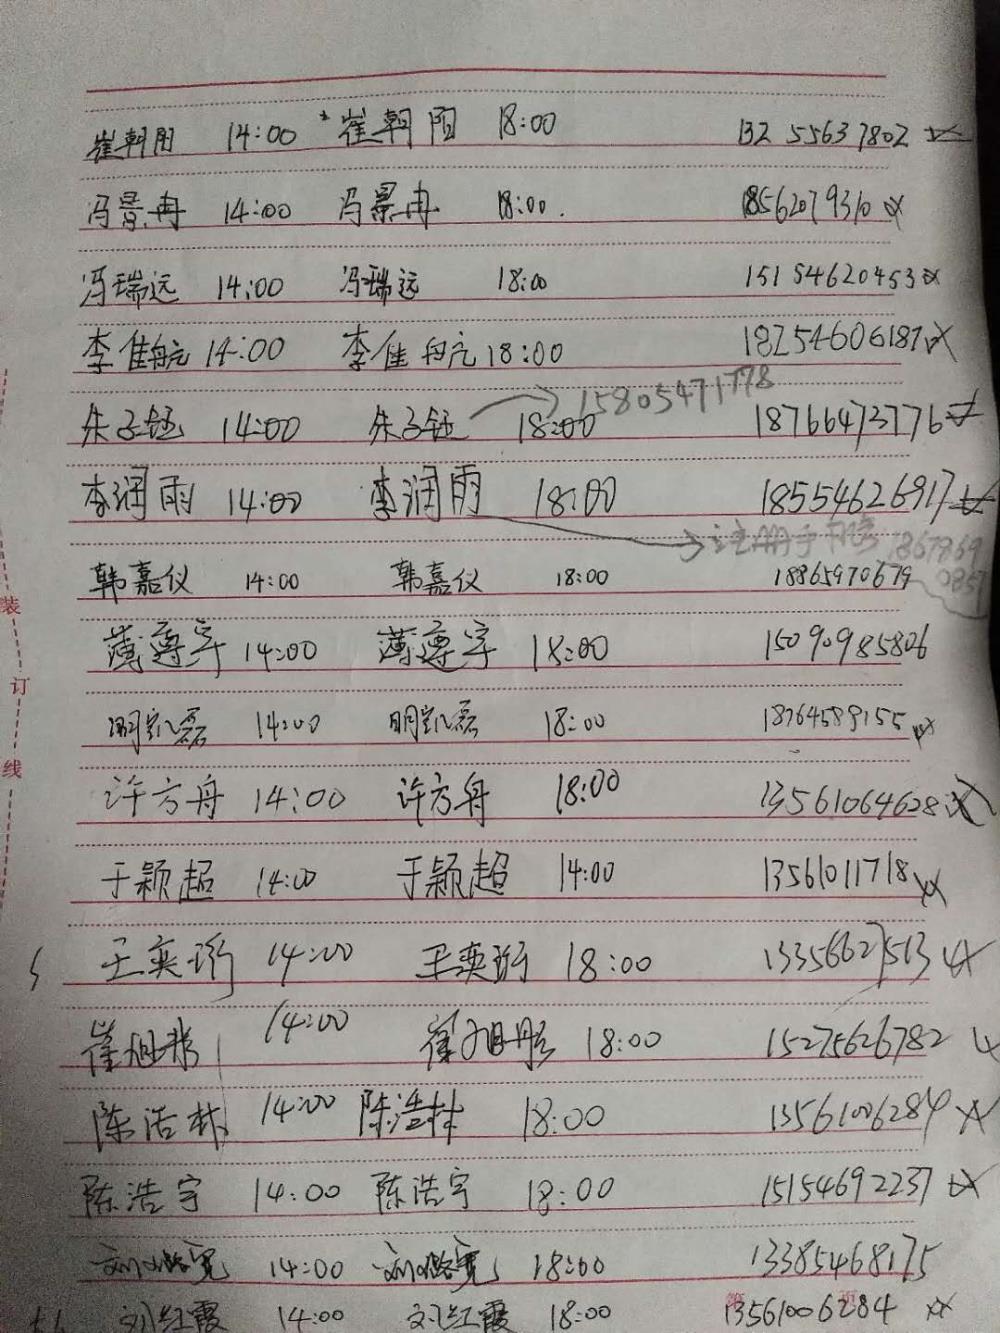 崔朝阳 14:00 崔朝阳 18:00 13255637802
冯景冉 14:00 冯景冉 18:00. 18562079310
冯瑞远 14:00 冯瑞远 18:00 15154620453
李佳航 14:00 李佳航 18:00 18254606187
15805471778
朱子钰 14:00 朱子钰 18:00 18766473776
李润雨 14:00 李润雨 18:00 18554626917
注册手机号 1867869
0857
韩嘉仪 14:00 韩嘉仪 18:00 18865970679
薄遵宇 14:00 薄遵宇 18:00 15090985806
明凯磊 14:00 明凯磊 18:00 18764589155
许方舟 14:00 许方舟 18:00 13561064628
于颖超 14:00 于颖超 14:00 13561011718
王奕珩 14:00 王奕珩 18:00 13356627513
崔旭彤 14:00 崔旭彤 18:00 15275626782
陈浩林 14:00 陈浩林 18:00 13561006284
陈浩宇 14:00 陈浩宇 18:00 15154692237
14:00 18:00 13385468175
刘红霞 14:00 刘红霞 18:00 13561006284
装
订
线
第 页